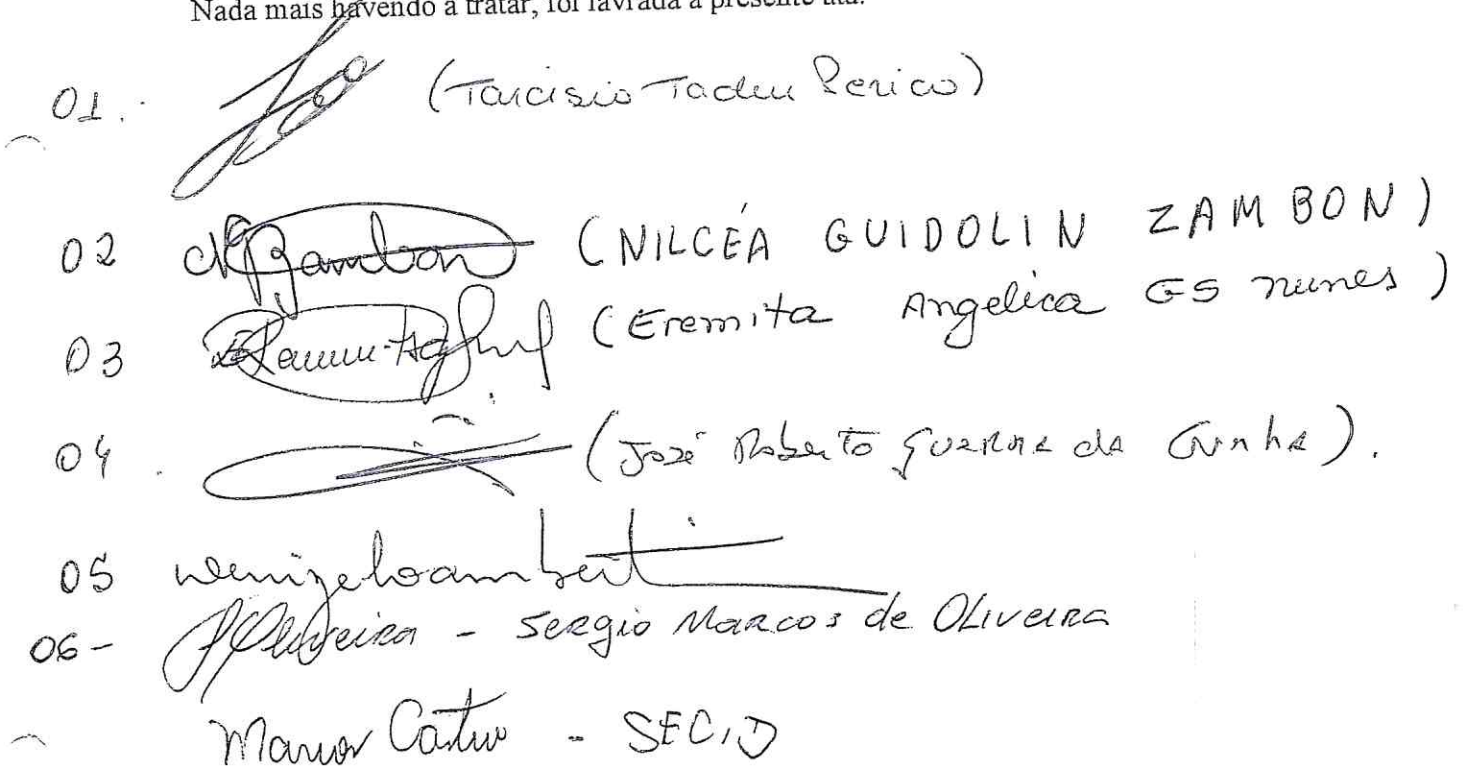 Nada mais havendo a tratar, foi lavrada a presente ata.
01. (Tarcisio Tadeu Perico)
02 NZambon (NILCÉA GUIDOLIN ZAMBON)
03 (Eremita Angelica GS nunes)
04. (José Roberto Guerra da Cunha).
05
06- Oliveira - Sergio Marcos de Oliveira
Castro - SECID